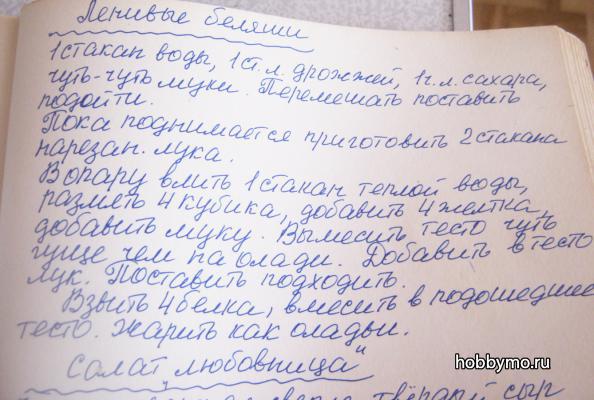 Ленивые беляши
1 стакан воды, 1 ст. л. дрожжей, 1 ч. л. сахара,
чуть-чуть муки. Перемешать поставить
подойти.
Пока поднимается приготовить 2 стакана
нарезан. лука.
В опару влить 1 стакан теплой воды,
размять 4 кубика, добавить 4 желтка,
добавить муку. Вымесить тесто чуть
гуще чем на олади. Добавить в тесто
лук. Поставить подходить.
Взбить 4 белка, вмесить в подошедшее
тесто. Жарить как оладьи.
Салат "любовница"
твёрдый сыр
hobbymo.ru